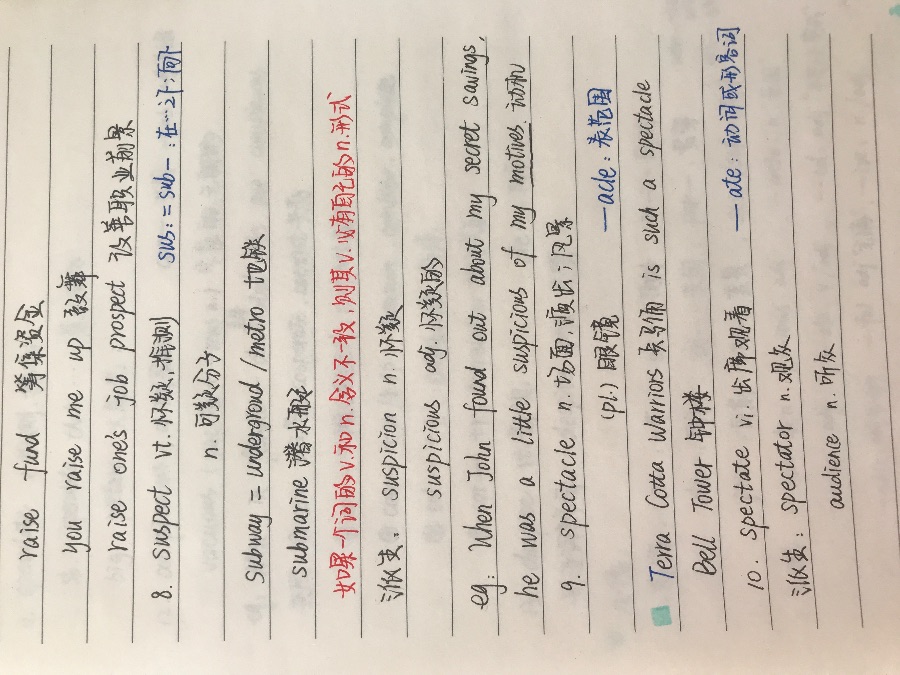 raise fund 筹集资金
you raise me up 鼓舞
raise one's job prospect 改善职业前景
8. suspect vt. 怀疑,推测 sus:=sub-:在…之下;向下
n. 可疑分子
subway = underground / metro 地铁
submarine 潜水艇
如果一个词的v.和n.含义不一致,则其v.必有自己的n.形式
派支: suspicion n. 怀疑
suspicious adj. 怀疑的
eg: When John found out about my secret savings,
he was a little suspicious of my motives. 动机
9. spectacle n. 场面;演出;风景
(pl.) 眼镜 —acle:表范围
Terra Cotta Warriors 兵马俑 is such a spectacle
Bell Tower 钟楼
10. spectate vi. 出席观看 —ate:动词或形容词
派支: spectator n. 观众
audience n. 听众